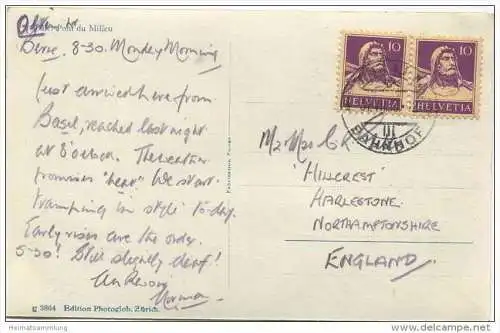 Pont du Milieu
Berne 8-30. Monday Morning
Just arrived here from
Basel, reached last night
at 8 o'clock. The weather
promises "heat". We start
tramping in style to-day.
Early rises are the order.
5-30! Still slightly deaf!
Norman
g 3864 Edition Photoglob, Zürich.
10 10
HELVETIA HELVETIA
III
BAHNHOF
Mr & Mrs
'HILLCREST'
HARLESTONE
NORTHAMPTONSHIRE
ENGLAND
http://www.heimatsammlung.de